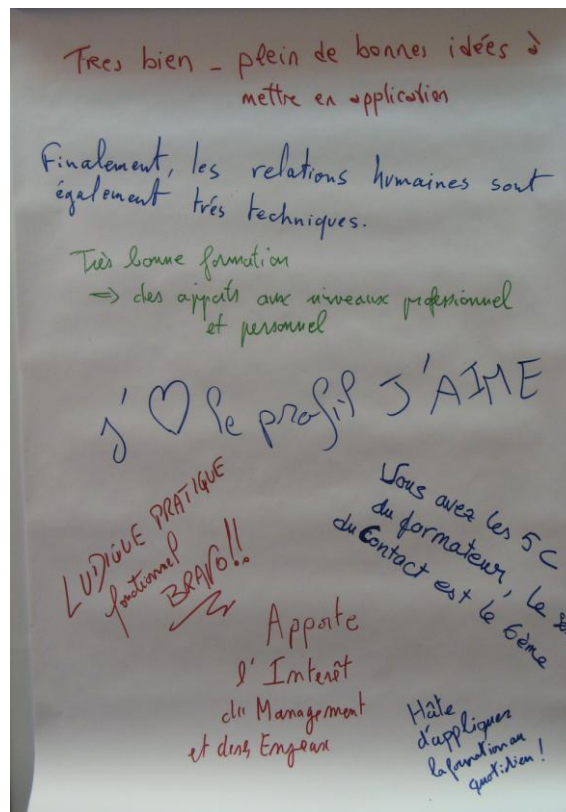 Tres bien _ plein de bonnes idées à
mettre en application
Finalement, les relations humaines sont
également trés techniques.
Très bonne formation
=> des apports aux niveaux professionnel
et personnel
J'♡ le profil J'AIME
LUDIQUE PRATIQUE
fonctionnel
BRAVO!!
Vous avez les 5 C
du formateur, le
du Contact est le 6ème
Apporte
l'Interêt
du Management
et des Enjeux
Hâte
d'appliquer
la formation au
quotidien !